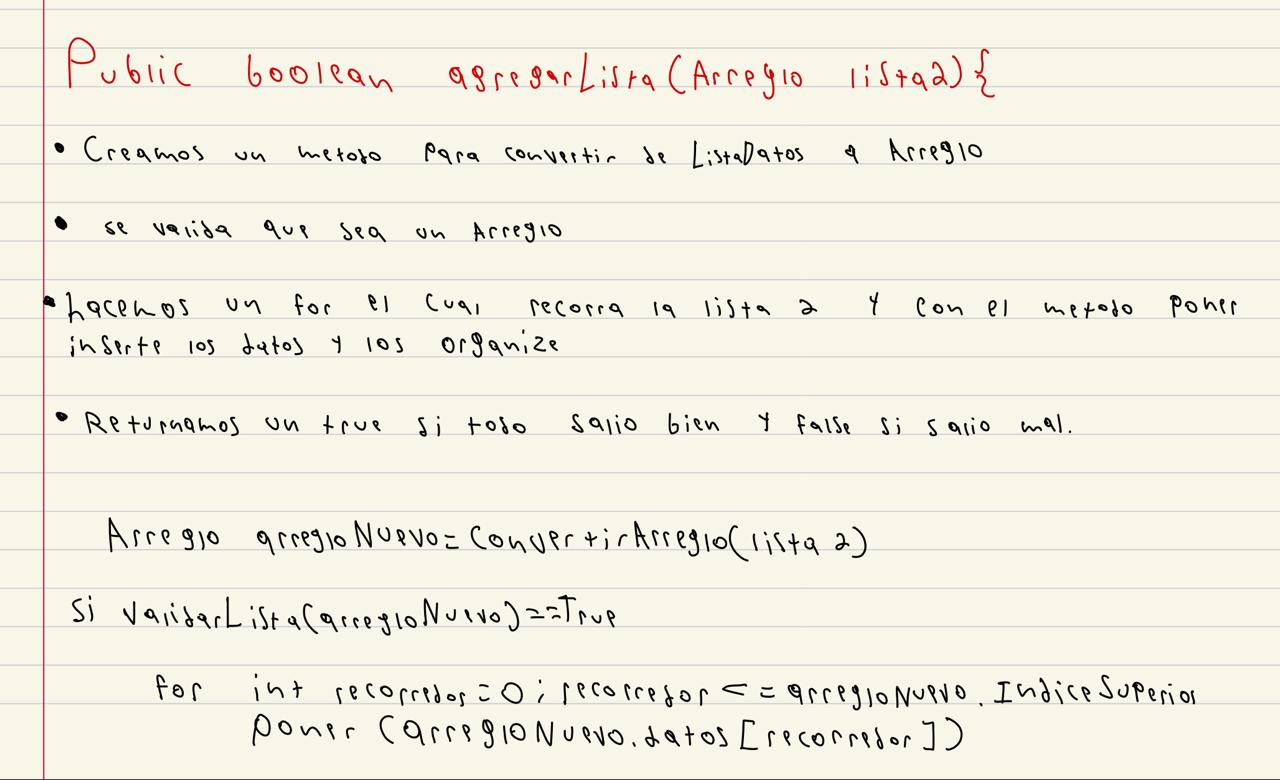 Public boolean agregarLista(Arreglo lista2){
• Creamos un metodo para convertir de ListaDatos a Arreglo
• se valida que sea un Arreglo
• hacemos un for el cual recorra la lista 2 y con el metodo poner
inserte los datos y los organize
• Returnamos un true si todo salio bien y false si salio mal.
Arreglo arregloNuevo=ConvertirArreglo(lista 2)
Si validarLista(arregloNuevo)==True
for int recorredor=0; recorredor <= arregloNuevo.IndiceSuperior
poner (arregloNuevo.datos[recorredor])